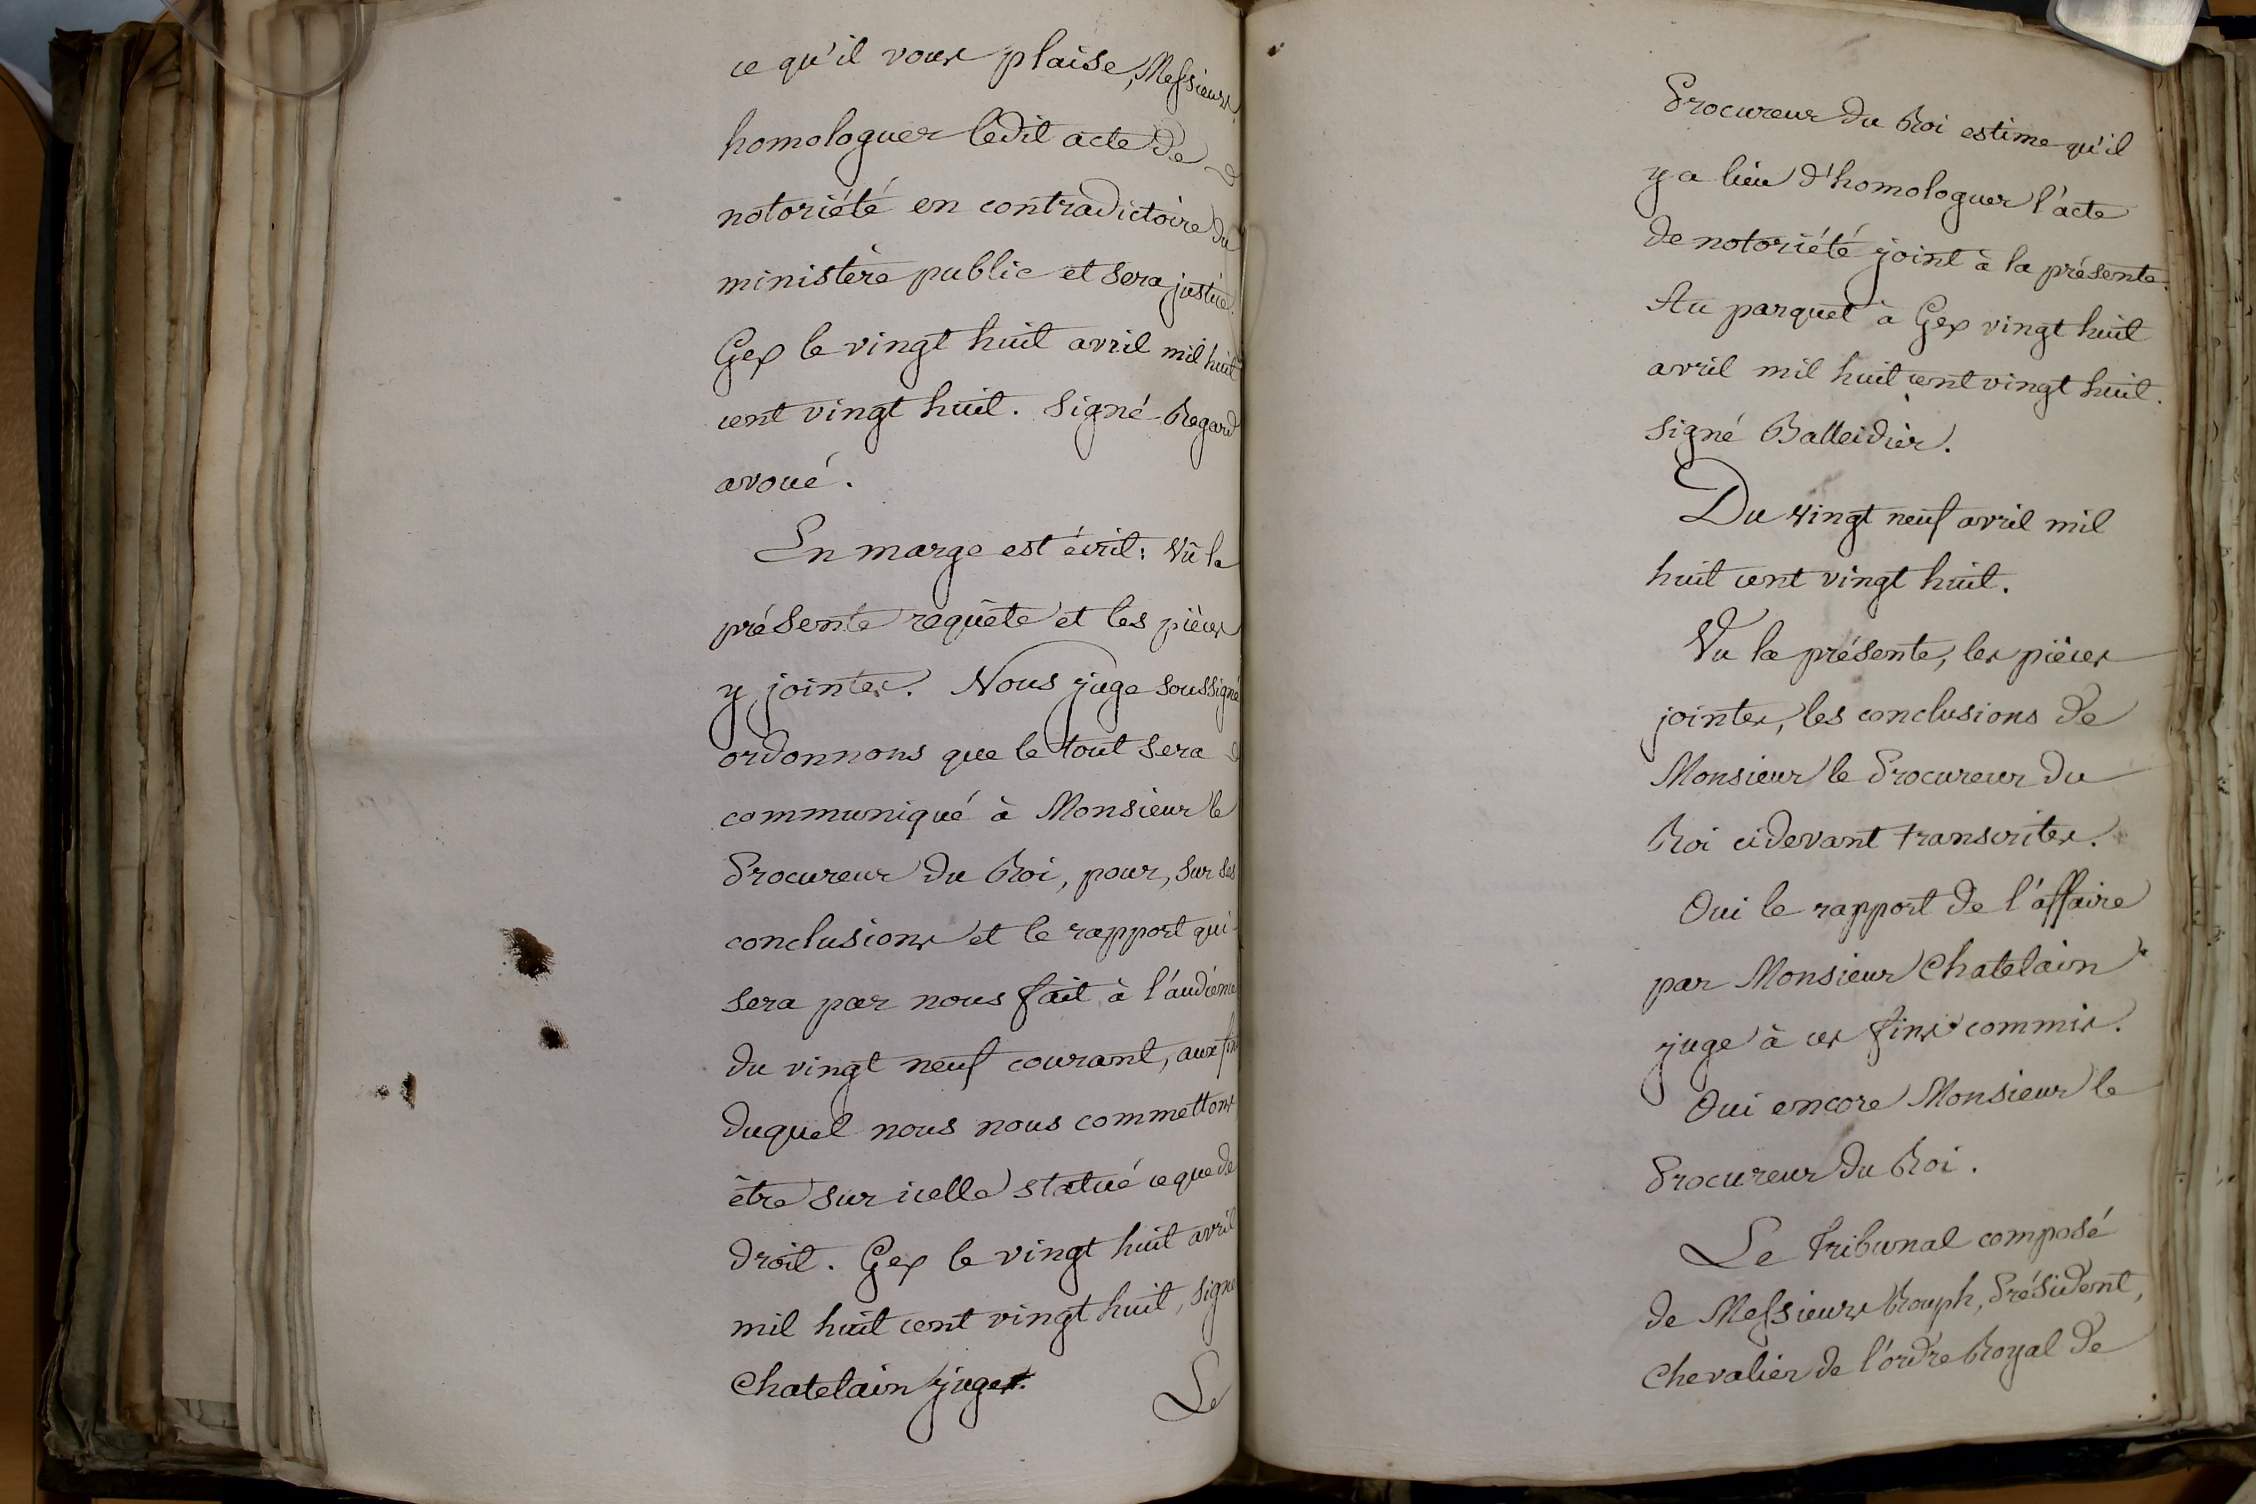 ce qu'il vous plaise, Messieurs
homologuer ledit acte de
notoriété en contradictoire du
ministère public et sera justice.
Gex le vingt huit avril mil huit
cent vingt huit. Signé Regard
avoué.
En marge est écrit: Vû la
présente requête et les pièces
y jointes. Nous juge soussigné
ordonnons que le tout sera
communiqué à Monsieur le
Procureur du Roi, pour, sur ses
conclusions et le rapport qui
sera par nous fait à l'audience
du vingt neuf courant, aux fins
duquel nous nous commettons
être sur icelle statué ce que de
droit. Gex le vingt huit avril
mil huit cent vingt huit, signé
Chatelain juge.
Le
Procureur du Roi estime qu'il
y a lieu d'homologuer l'acte
de notoriété joint à la présente.
Au parquet à Gex vingt huit
avril mil huit cent vingt huit.
signé Balleidier.
Du vingt neuf avril mil
huit cent vingt huit.
Vu la présente, les pièces
jointes, les conclusions de
Monsieur le Procureur du
Roi cidevant transcrites.
Oui le rapport de l'affaire
par Monsieur Chatelain
juge à ces fins commis.
Oui encore Monsieur le
Procureur du Roi.
Le Tribunal composé
de Messieurs Rouph, Président,
Chevalier de l'ordre Royal de